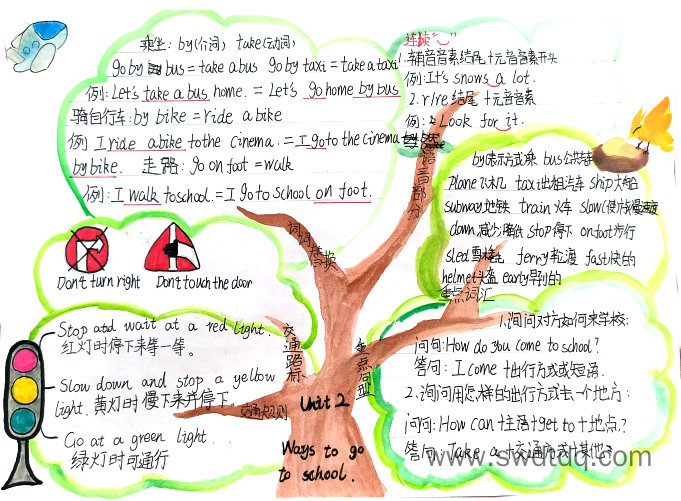 乘坐: by(介词) take(动词)
go by bus = take a bus go by taxi = take a taxi
例: Let's take a bus home. = Let's go home by bus
骑自行车: by bike = ride a bike
例 I ride a bike to the cinema. = I go to the cinema
by bike. 走路: go on foot = walk
例: I walk to school. = I go to school on foot.
连读"‿"
1.辅音音素结尾+元音音素开头
例: It's snows a lot.
2. r/re结尾+元音素
例: Look for it.
语音部分
by(表示方式)乘 bus公共汽车
Plane飞机 taxi出租汽车 ship大船
subway地铁 train火车 slow(使)放慢速度
down减少;降低 stop停下 on foot步行
sled雪橇 ferry轮渡 fast快的
helmet头盔 early早到的
重点词汇
词词替换
Don't turn right Don't touch the door
交通路标
Stop and wait at a red light.
红灯时停下来等一等。
Slow down and stop a yellow
light. 黄灯时慢下来并停下.
Go at a green light.
绿灯时可通行
交通规则
重点句型
1.询问对方如何来学校:
问句: How do you come to school?
答句: I come +出行方式或短语.
2.询问用怎样的出行方式去一个地方:
问句: How can +主语+get to +地点?
答句: Take a +交通方式+其他?
Unit 2
Ways to go
to school.
www.swdtdq.com